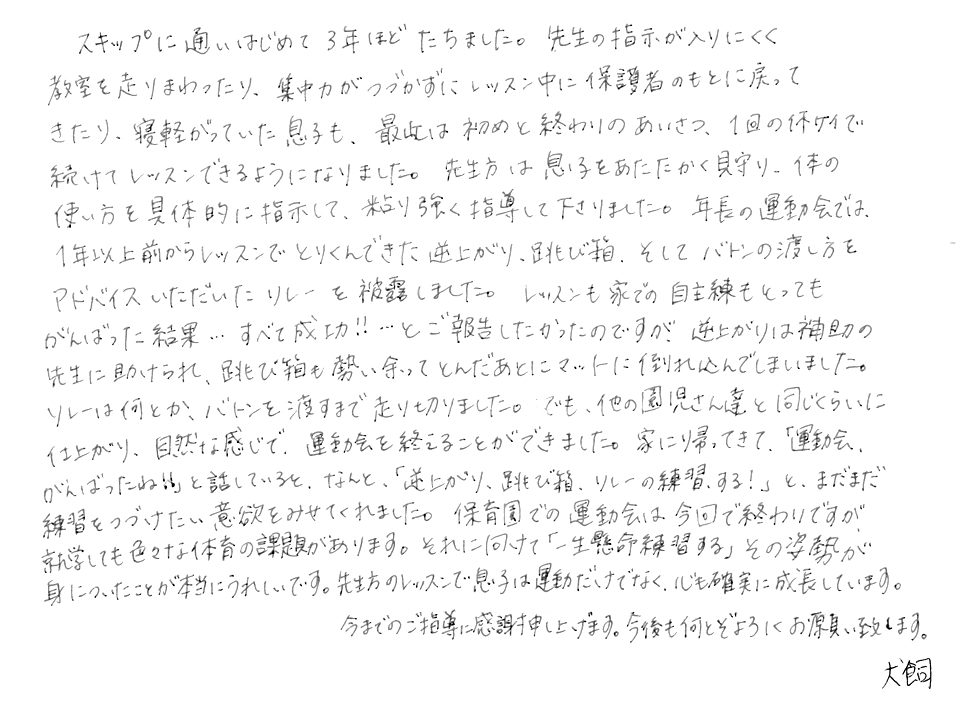 スキップに通いはじめて3年ほどたちました。先生の指示が入りにくく
教室を走りまわったり、集中力がつづかずにレッスン中に保護者のもとに戻って
きたり、寝転がっていた息子も、最近は初めと終わりのあいさつ、1回の休ケイで
続けてレッスンできるようになりました。先生方は息子をあたたかく見守り、体の
使い方を具体的に指示して、粘り強く指導して下さりました。年長の運動会では、
1年以上前からレッスンでとりくんできた逆上がり、跳び箱、そしてバトンの渡し方を
アドバイスいただいたリレーを披露しました。レッスンも家での自主練もとっても
がんばった結果…すべて成功!!…とご報告したかったのですが、逆上がりは補助の
先生に助けられ、跳び箱も勢い余ってとんだあとにマットに倒れ込んでしまいました。
リレーは何とか、バトンを渡すまで走り切りました。でも、他の園児さん達と同じくらいに
仕上がり、自然な感じで、運動会を終えることができました。家に帰ってきて、「運動会、
がんばったね!!」と話していると、なんと、「逆上がり、跳び箱、リレーの練習、する!」と、まだまだ
練習をつづけたい意欲をみせてくれました。保育園での運動会は今回で終わりですが
就学しても色々な体育の課題があります。それに向けて「一生懸命練習する」その姿勢が
身についたことが本当にうれしいです。先生方のレッスンで息子は運動だけでなく、心も確実に成長しています。
今までのご指導に感謝申し上げます。今後も何とぞよろしくお願い致します。
犬飼